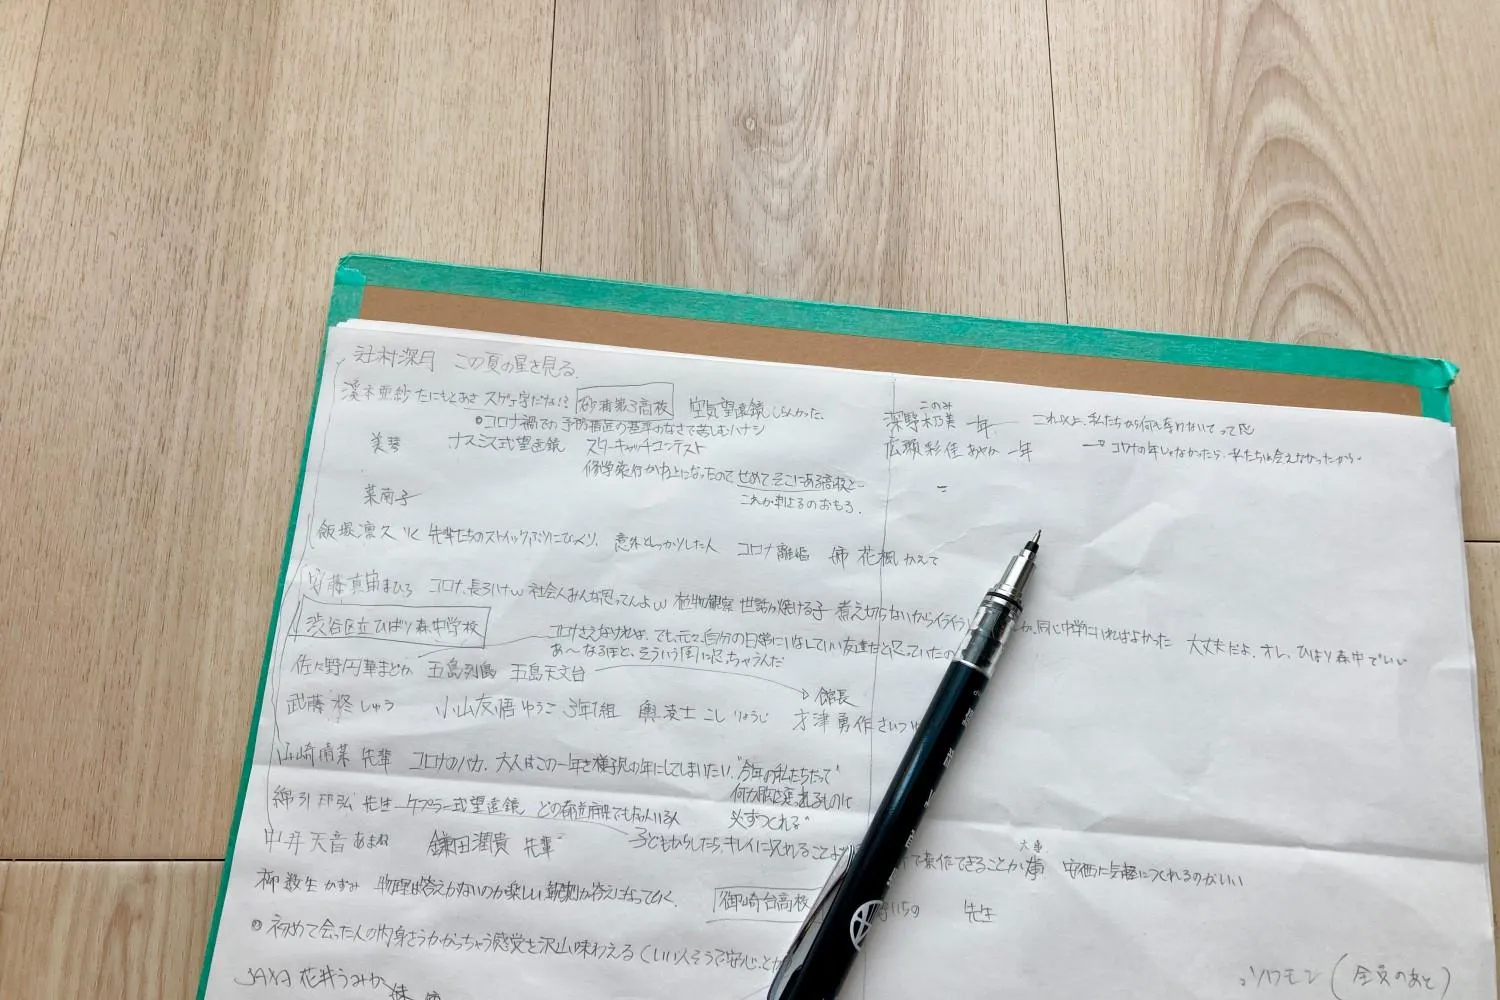 辻村深月 この夏の星を見る
溪本亜紗 たにもとあさ スゲー字だな!? 砂浦第三高校 空気望遠鏡 しらんかった.
コロナ禍での予防措置の基準のなさで苦しむハナシ
美琴 ナスミス式望遠鏡 スターキャッチコンテスト
修学旅行が中止になったので せめてそこにある高校と…
これが刺さるのおもろ.
菜南子
飯塚凛久 りく 先輩たちのストイックぶりにびっくり. 意外としっかりした人 コロナ離婚 姉 花楓 かえで
安藤真宙 まひろ コロナ、長ろいけw 社会人みんな思ってんよw 植物観察 世話が焼ける子 煮え切らないからイライラ
同じ中学にいればよかった 大丈夫だよ、オレ、ひばり森中でいい
渋谷区立ひばり森中学校
コロナさえなければ、でも、元々、自分の日常にはなしていい友達だと思っていたの
あ〜なるほど、そういう風に思っちゃうんだ
佐々野円華 まどか 五島列島 五島天文台
館長
武藤 柊 しゅう 小山友悟 ゆうご 3年1組 輿凌士 こし りょうじ 才津勇作 さいつ
山崎晴菜 先輩 コロナのバカ. 大人はこの一年を様子見の年にしてしまいたい. "今年の私たちだって"
必ずつくれる"
綿引邦弘 先生 ケプラー式望遠鏡 どの都道府県でも
中井天音 あまね 鎌田潤貴 先輩 子どもからしたら、キレイに見れることより
大事
で操作できることが 安価に気軽につくれるのがいい
柳数生 かずみ 物理は答えがないのが楽しい 観測が答えになっていく. 御崎台高校
いちの 先生
初めて会った人の内身さうかがっちゃう感覚を沢山味わえる (いい人そうで安心、とか
JAXA 花井うみか
ソロモン (全員のあと)
深野木乃美 このみ 一年 これ以上、私たちから何も奪わないでって思
広瀬彩佳 あやか 一年 → コロナの年じゃなかったら、私たちは会えなかったから.